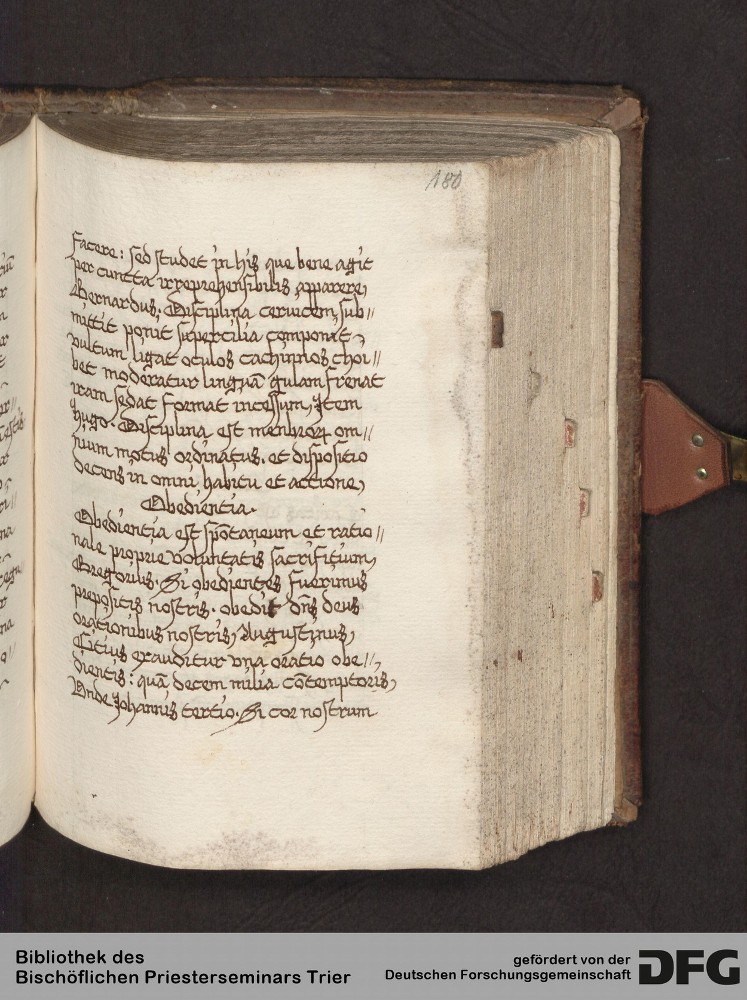 180
facere: sed studet in his que bene agit
per cuncta irreprehensibilis apparere,
Bernardus. Disciplina ceruicem sub//
mittit ponit supercilia componit
vultum ligat oculos cachinnos choi//
bet moderatur linguā gulam frenat
iram sedat format incessum, Item
hugo. Disciplina est menbroꝝ om//
nium motus ordinatus. et dispositio
decens in omni habitu et actione,
Obedientia.
Obedientia est spōtaneum et ratio//
nale proprie voluntatis sacrificium,
Gregorius. Si obedientes fuerimus
prepositis nostris. obedit dn̄s deus
orationibus nostris, Augustinus,
Citius exauditur vna oratio obe//,
dientis: quā decem milia cōtemptoris,
Vnde Johannis tertio. Si cor nostrum
Bibliothek des
Bischöflichen Priesterseminars Trier
gefördert von der
Deutschen Forschungsgemeinschaft
DFG